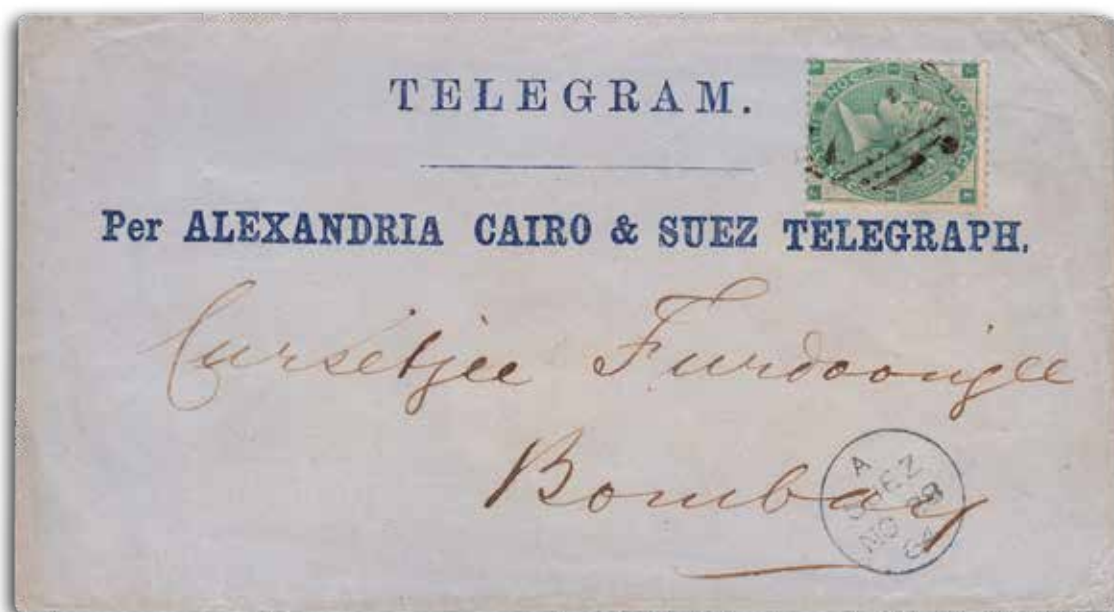 TELEGRAM.
Per ALEXANDRIA CAIRO & SUEZ TELEGRAPH.
Cursetjee Furdoonjee
Bombay
A
SUEZ
NO